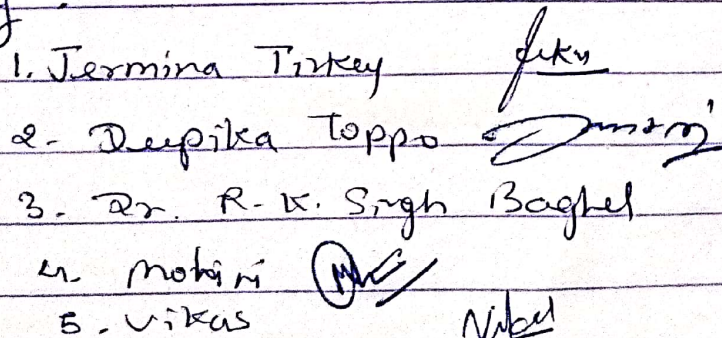 1. Jermina Tirkey
2- Deepika Toppo
3- Dr. R-K. Singh Baghel
4. Mohini
5. Vikas